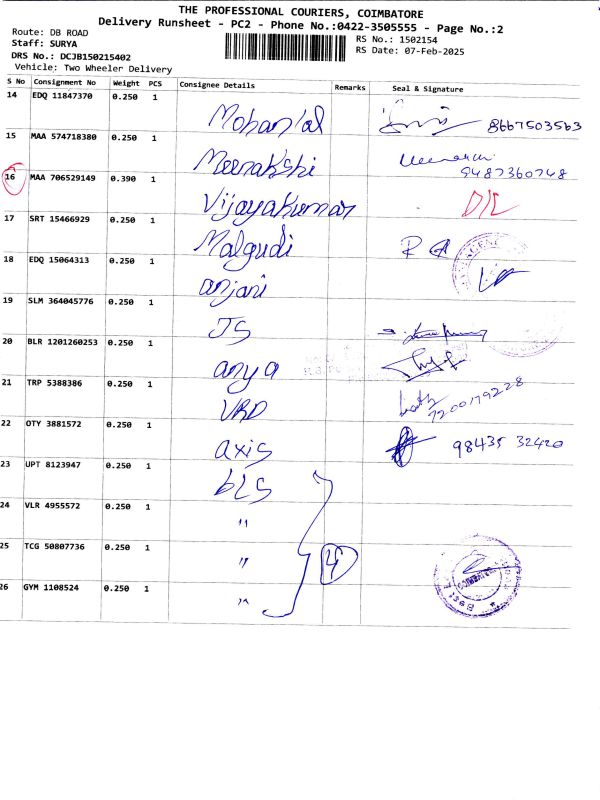 THE PROFESSIONAL COURIERS, COIMBATORE
Delivery Runsheet - PC2 - Phone No.:0422-3505555 - Page No.:2
Route: DB ROAD
RS No.: 1502154
Staff: SURYA
RS Date: 07-Feb-2025
DRS No.: DCJB150215402
Vehicle: Two Wheeler Delivery
S No Consignment No Weight PCS Consignee Details Remarks Seal & Signature
14 EDQ 11847370 0.250 1 Mohanlal 8667503563
15 MAA 574718380 0.250 1 Meenakshi 9487360748
16 MAA 706529149 0.390 1 Vijayakumar D/L
17 SRT 15466929 0.250 1 Malgudi
18 EDQ 15064313 0.250 1 anjani
19 SLM 364045776 0.250 1 JS
20 BLR 1201260253 0.250 1 anya
21 TRP 5388386 0.250 1 VRD 7200179228
22 OTY 3881572 0.250 1 axis 98435 32420
23 UPT 8123947 0.250 1 bLS
24 VLR 4955572 0.250 1 "
25 TCG 50807736 0.250 1 " 4
26 GYM 1108524 0.250 1 "